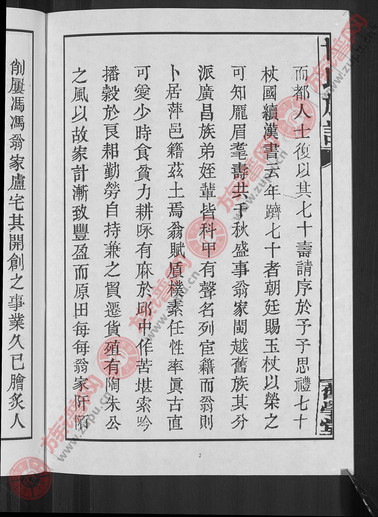 而都人士復以其七十壽請序於予予思禮七十
杖國續漢書云年躋七十者朝廷賜玉杖以榮之
可知龐眉耄壽共于秋盛事翁家閩越舊族其分
派廣昌族弟姪輩皆科甲有聲名列宦籍而翁則
卜居萍邑籍茲土焉翁賦盾樸素任性率眞古直
可愛少時食貧力耕啄有麻於邱中作苦堪索吟
播穀於亰耞勤勞自持兼之貿遷貨殖有陶朱公
之風以故家計漸致豐盈而原田每每翁家阡陌
削屢馮馮翁家廬宅其開創之事業久已膾炙人
2
族譜网
www.zupu.cn